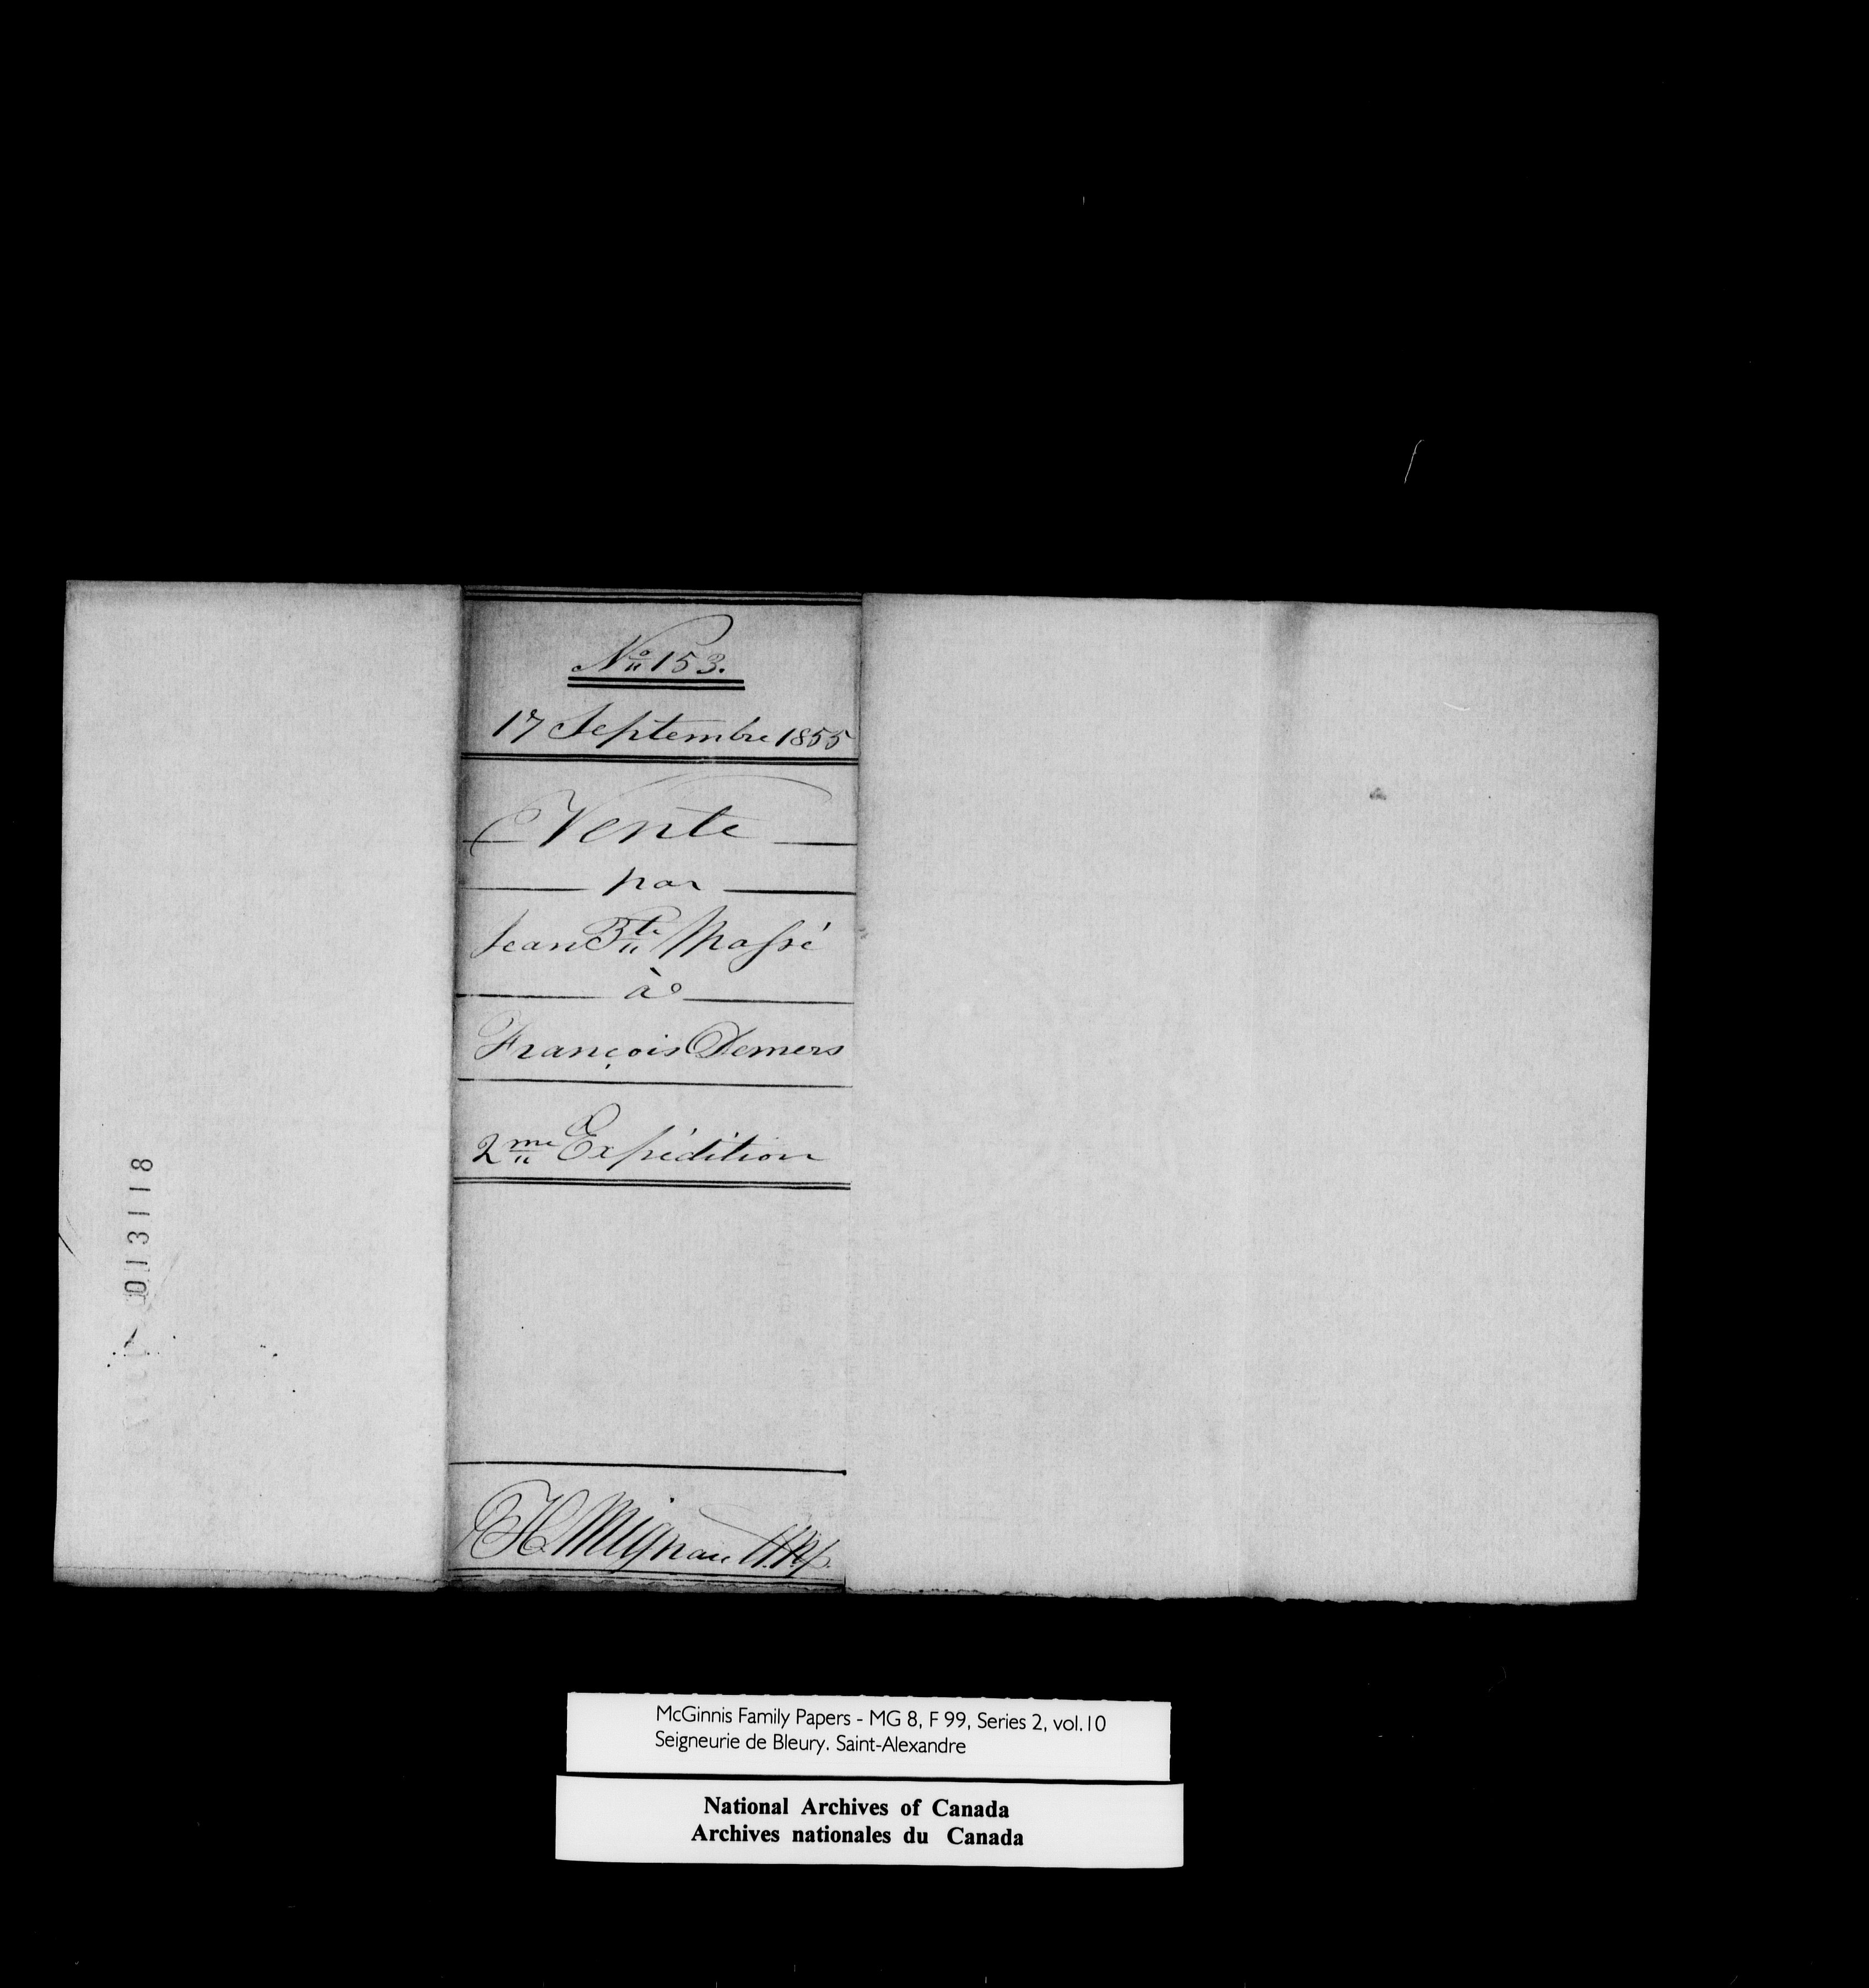 No 153.
17 Septembre 1855
Vente
par
Jean Bte Massé
à
François Demers
2me Expédition
H Mignault N.P.
013118
McGinnis Family Papers - MG 8, F 99, Series 2, vol.10
Seigneurie de Bleury. Saint-Alexandre
National Archives of Canada
Archives nationales du Canada